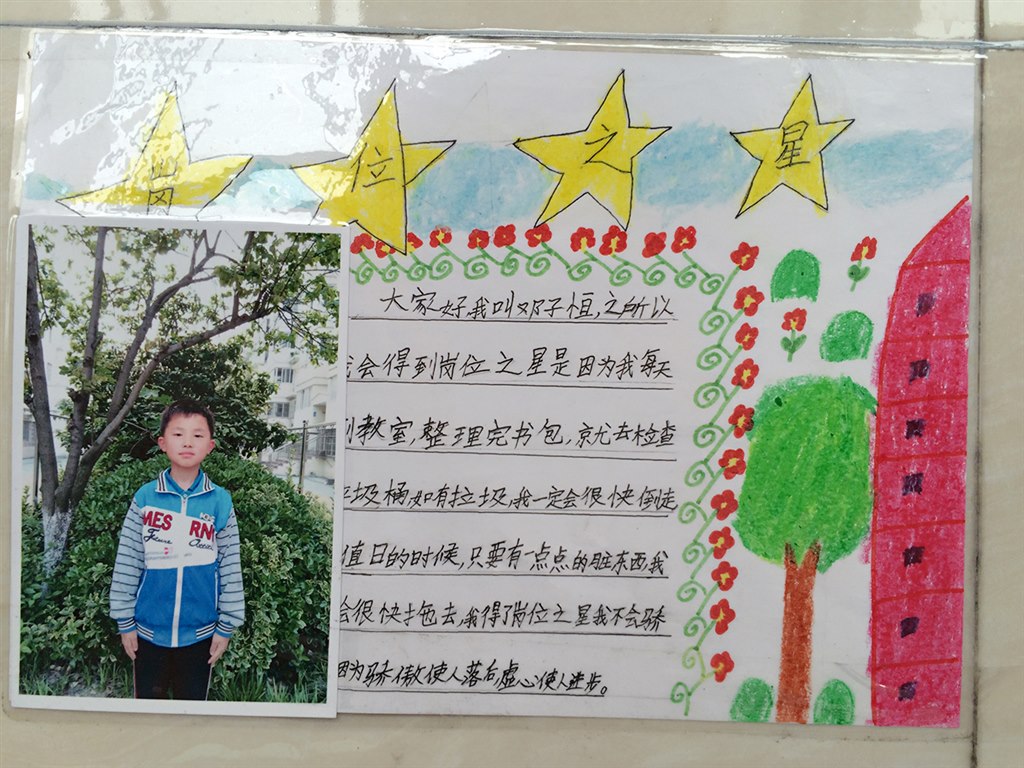 岗位之星
大家好,我叫邓子恒,之所以
我会得到岗位之星是因为我每天
到教室,整理完书包,就去检查
垃圾桶,如有垃圾,我一定会很快倒走
值日的时候,只要有一点点的脏东西,我
会很快拖去,我得了岗位之星我不会骄
因为骄傲使人落后,虚心使人进步。
MES RN